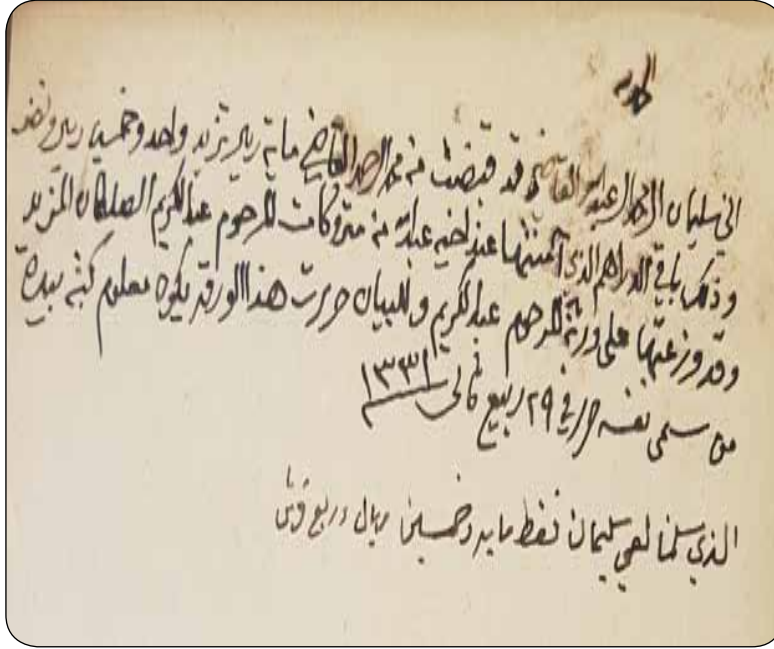 اني سليمان الحمد العبدالله القاضي قد قبضت من محمد الحمد القاضي ماية ريال تزيد واحد وخمسين ريال ونصف
وذلك باقي الدراهم الذي آمنتها عند اخيه عبدالله من متروكات المرحوم عبدالكريم الصلطان المزيد
وقد وزعتها على ورثة المرحوم عبدالكريم وللبيان حررت هذا الورقه يكون معلوم كتبه بيده
من سمى نفسه حرر في ٢٩ ربيع ثاني ١٣٣١
الذي سلمنا لعمي سليمان فقط مايه وخمسين ريال وربع قرش